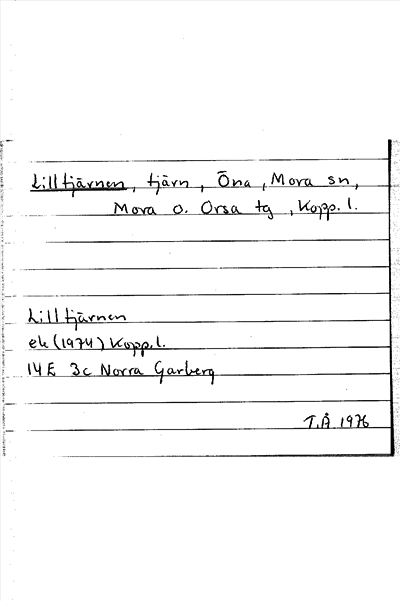 Lilltjärnen, tjärn, Öna, Mora sn,
Mora o. Orsa tg, Kopp. l.
Lilltjärnen
ek (1974) Kopp. l.
14E 3c Norra Garberg
T.Å 1976